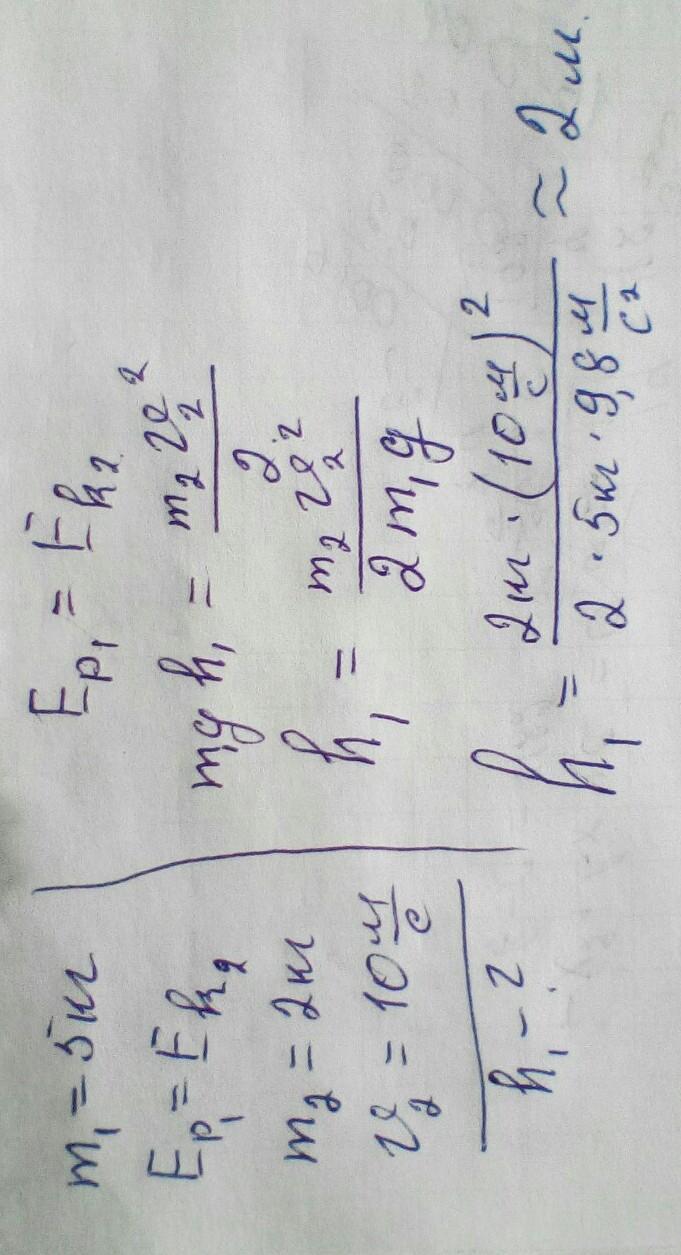 m₁ = 5 кг
Eₚ₁ = Eₖ₂
m₂ = 2 кг
v₂ = 10 м/с
h₁ - ?
Eₚ₁ = Eₖ₂
m₁g h₁ = m₂ v₂² / 2
h₁ = m₂ v₂² / 2 m₁ g
h₁ = 2 кг · (10 м/с)² / 2 · 5 кг · 9,8 м/с² ≈ 2 м.